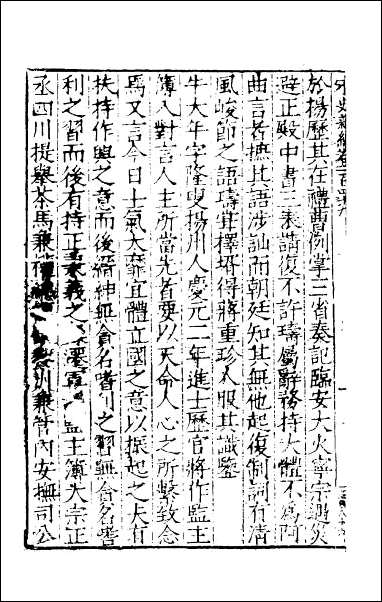 宋史新編卷一百
於揚歷其在禮曹例掌三省奏記臨安大火寧宗避災
避正殿中書三表請復不許璹屬辭務持大體不為阿
曲言者摭其語涉訕而朝廷知其無他起復制詞有清
風峻節之語璹宜擇壻得將重珍人服其識鑒
牛大年字隆叟揚州人慶元二年進士歷官將作監主
簿入對言人主所當先者要以天命人心之所繫致念
焉又言今日士氣大靡宜體立國之意以振起之夫有
扶持作興之意而後縉紳無貪名嗜利之習無貪名嗜
利之習而後有持正秉義之 遷 監主簿大宗正
丞四川提舉茶馬兼 兼管內安撫司公